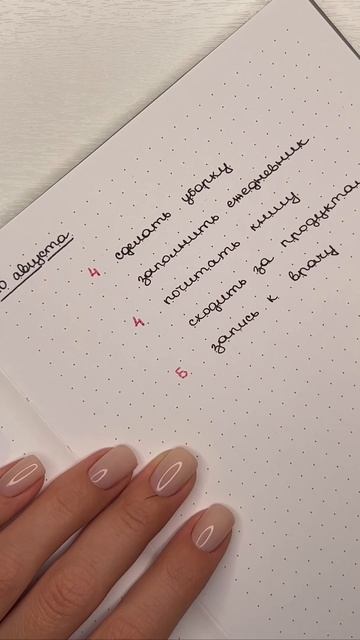 августа
4 сделать уборку
заполнить ежедневник
4 почитать книгу
сходить за продукта
Б запись к врачу